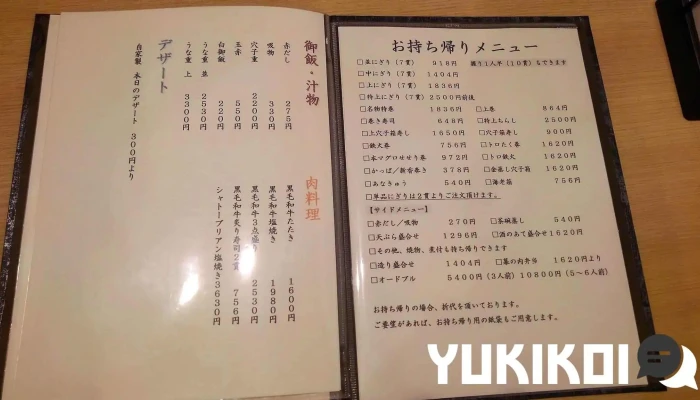 御飯・汁物
赤だし 275円
吸物 330円
穴子重 2200円
玉赤 550円
白御飯 220円
うな重 並 2530円
うな重 上 3300円
デザート
自家製 本日のデザート 300円より
肉料理
黒毛和牛たたき 1600円
黒毛和牛塩焼き 1980円
黒毛和牛3点盛り 2530円
黒毛和牛炙り寿司2貫 756円
シャトーブリアン塩焼き 3630円
お持ち帰りメニュー
□並にぎり(7貫) 918円 握り1人半(10貫)もできます
□中にぎり(7貫) 1404円
□上にぎり(7貫) 1836円
□特上にぎり(7貫) 2500円前後
□名物特巻 1836円 □上巻 864円
□巻き寿司 648円 □特上ちらし 2500円
□上穴子箱寿し 1650円 □穴子箱寿し 900円
□鉄火巻 756円 □トロたく巻 1620円
□本マグロせせり巻 972円 □トロ鉄火 1620円
□かっぱ/新香巻き 378円 □金蒸し穴子箱 1620円
□あなきゅう 540円 □海老箱 756円
□単品にぎりは2貫よりご注文頂けます。
【サイドメニュー】
□赤だし/吸物 270円 □茶碗蒸し 540円
□天ぷら盛合せ 1296円 □酒のあて盛合せ 1620円
□その他、焼物、煮付も持ち帰りできます
□造り盛合せ 1404円 □幕の内弁当 1620円より
□オードブル 5400円(3人前) 10800円(5~6人前)
お持ち帰りの場合、折代を頂いております。
ご要望があれば、お持ち帰り用の紙袋もご用意します。
YUKIKOI